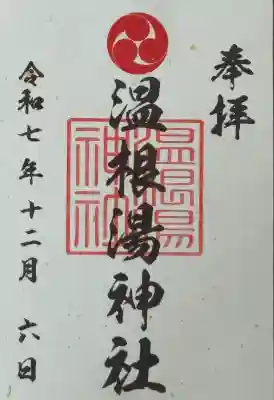 奉拝
温根湯神社
温根湯神社
令和七年十二月六日